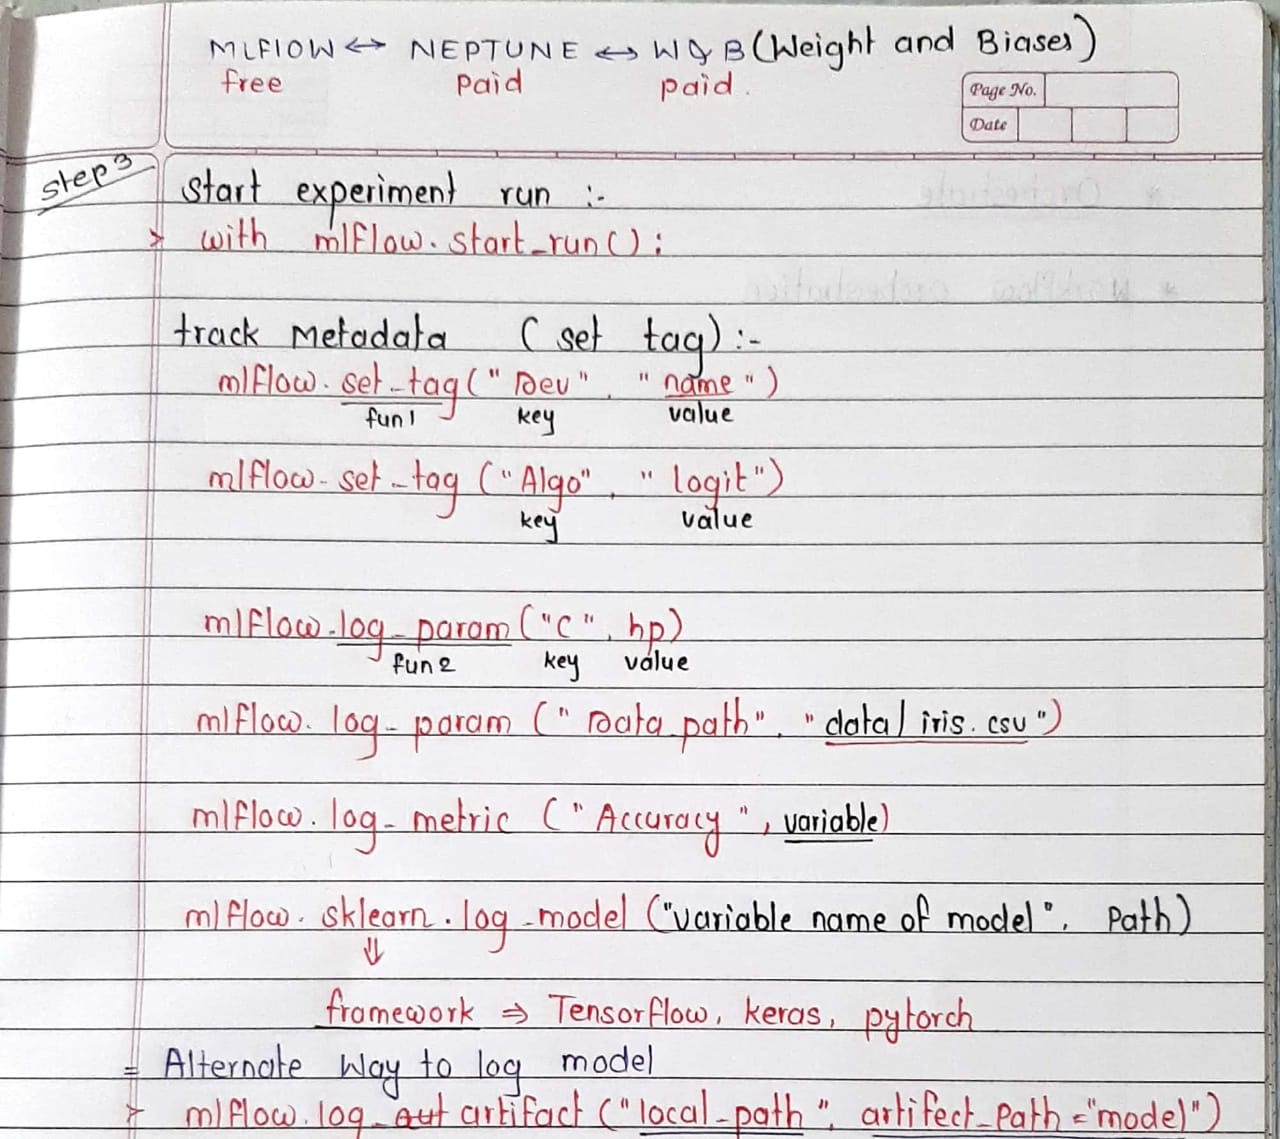 MLFLOW ↔ NEPTUNE ↔ W&B (Weight and Biases)
free Paid paid.
Page No.
Date
Step 3
start experiment run :-
> with mlflow.start_run():
track Metadata ( set tag) :-
mlflow.set_tag("Dev", "name")
fun1 key value
mlflow.set_tag ("Algo", "logit")
key value
mlflow.log_param ("C", hp)
fun2 key value
mlflow.log_param ("Data path", "data/iris.csv")
mlflow.log_metric ("Accuracy", variable)
mlflow.sklearn.log_model ("variable name of model", Path)
⇓
framework ⇒ Tensorflow, keras, pytorch
= Alternate Way to log model
> mlflow.log_artifact ("local_path", artifect_Path="model")